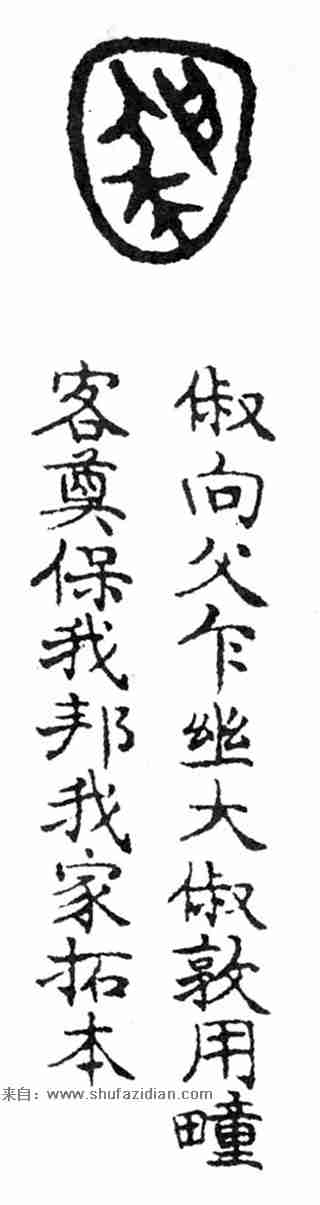 俶向父乍㘴大俶敦用疃
客奠保我邦我家拓本
来自：www.shufazidian.com